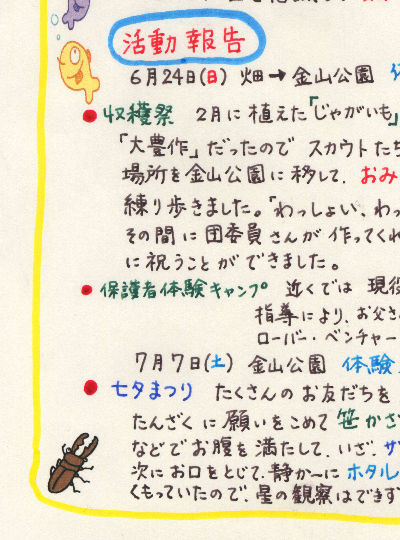 活動報告
6月24日(日) 畑→金山公園
収穫祭 2月に植えた「じゃがいも」
「大豊作」だったので スカウトたち
場所を金山公園に移して、おみ
練り歩きました。「わっしょい、わっ
その間に団委員さんが作ってくれ
に祝うことができました。
保護者体験キャンプ 近くでは 現役
指導により、お父さ
ローバー・ベンチャー
7月7日(土) 金山公園 体験
七夕まつり たくさんのお友だちを
たんざくに願いをこめて 笹かざ
などでお腹を満たして、いざ、ザ
次にお口をとじて、静か〜にホタル
くもっていたので、星の観察はできず